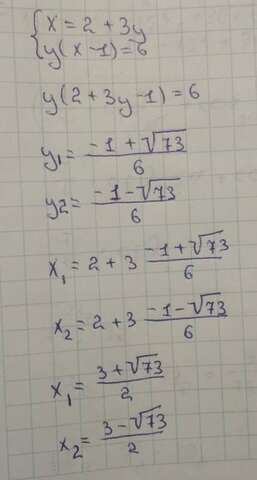 { x = 2 + 3y
{ y(x-1) = 6
y(2+3y-1) = 6
y₁ = (-1+√73)/6
y2 = (-1-√73)/6
x₁ = 2 + 3 (-1+√73)/6
x₂ = 2 + 3 (-1-√73)/6
x₁ = (3+√73)/2
x₂ = (3-√73)/2